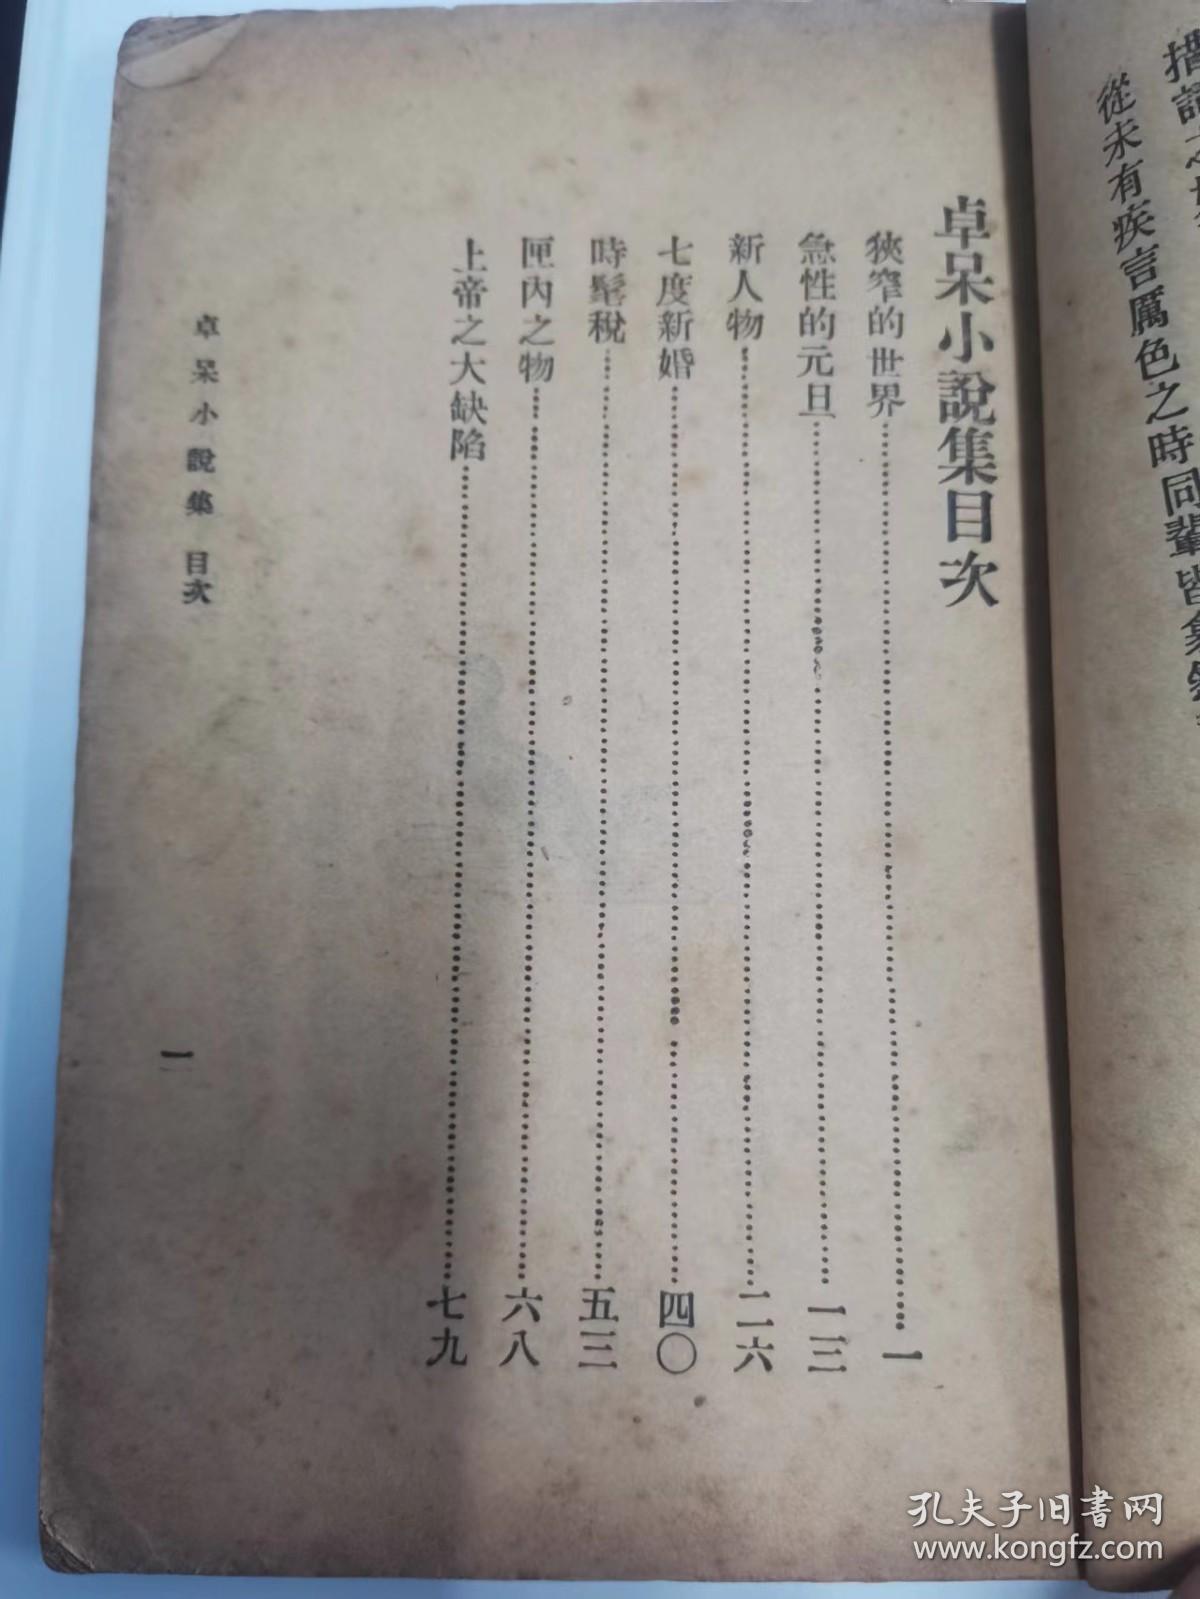 從未有疾言厲色之時同輩皆
卓呆小說集目次
狹窄的世界……一
急性的元旦……一三
新人物……二六
七度新婚……四〇
時髦稅……五三
匣內之物……六八
上帝之大缺陷……七九
卓呆小說集 目次
一
孔夫子旧书网
www.kongfz.com